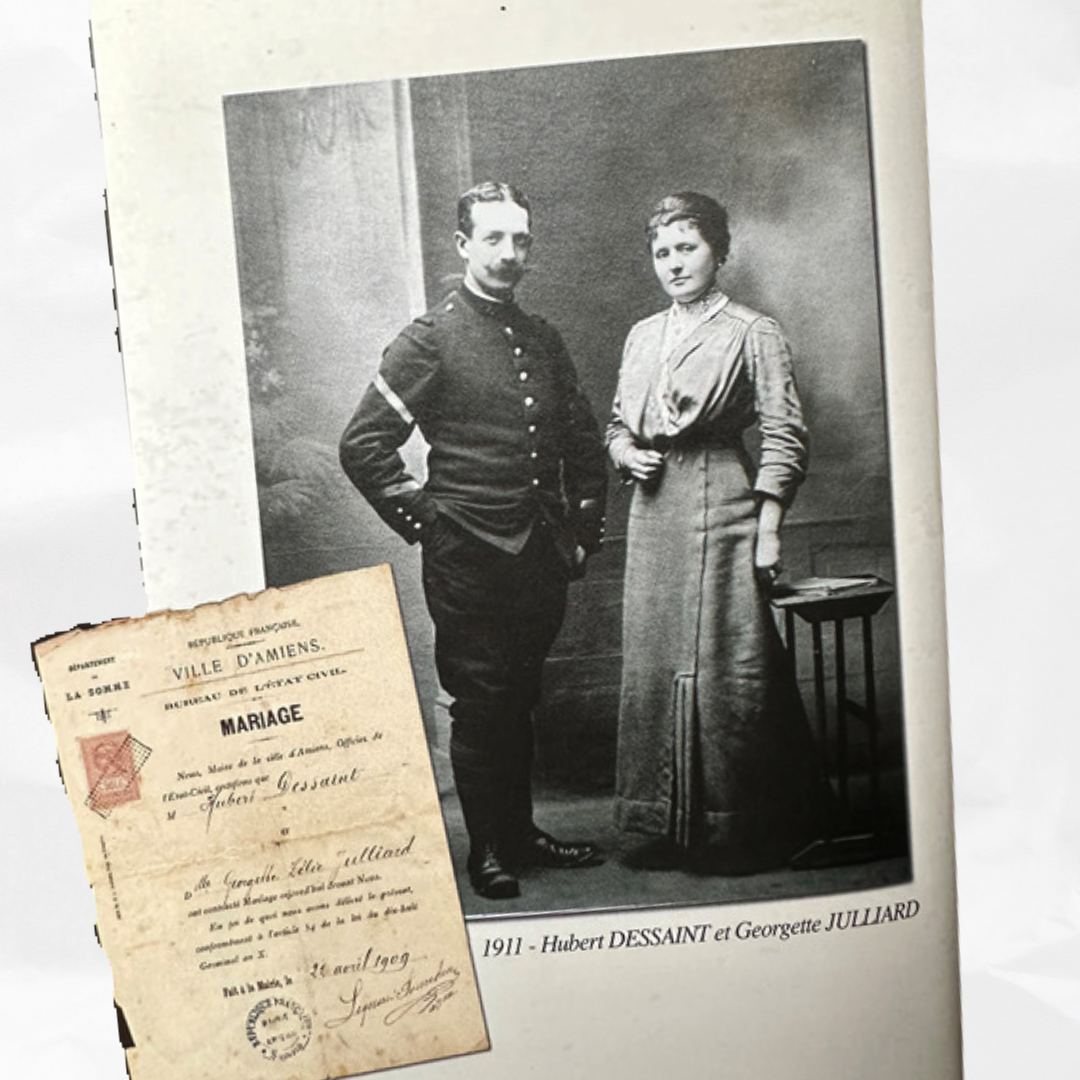 RÉPUBLIQUE FRANÇAISE.
DÉPARTEMENT
DE
LA SOMME
VILLE D'AMIENS.
BUREAU DE L'ÉTAT CIVIL.
MARIAGE
Nous, Maire de la ville d'Amiens, Officier de
l'État-Civil, certifions que
M Hubert Dessaint
ET
D lle Georgette Zélie Julliard
ont contracté Mariage aujourd'hui devant Nous.
En foi de quoi nous avons délivré le présent,
conformément à l'article 54 de la loi du dix-huit
Germinal an X.
Fait à la Mairie, le avril 1909
RÉPUBLIQUE FRANÇAISE
1911 - Hubert DESSAINT et Georgette JULLIARD